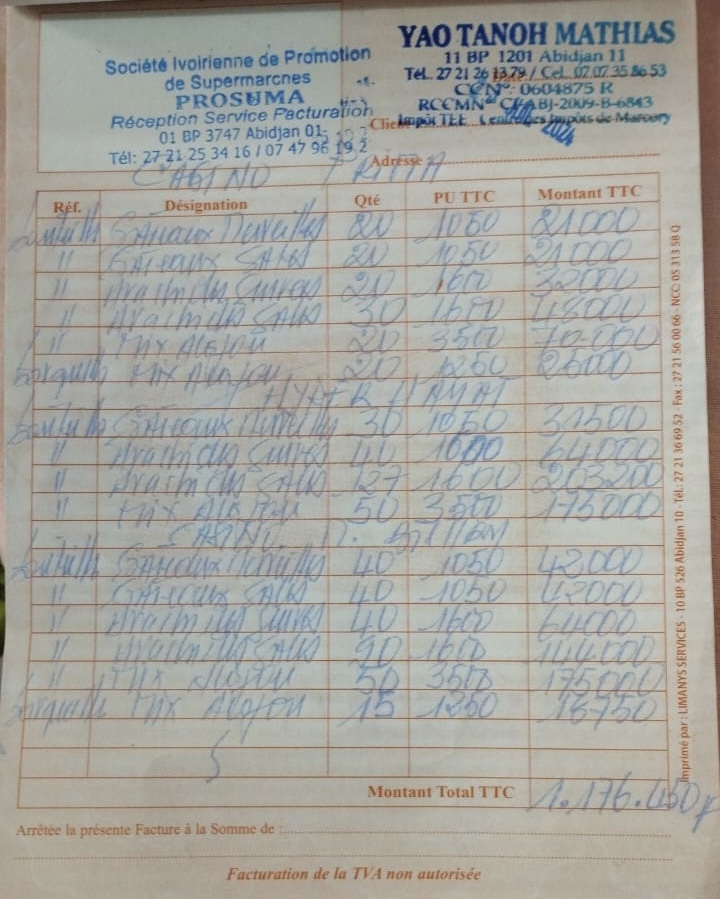 Société Ivoirienne de Promotion
de Supermarcnes
PROSUMA
Réception Service Facturation
01 BP 3747 Abidjan 01
Tél: 27 21 25 34 16 / 07 47 96 19 2
YAO TANOH MATHIAS
11 BP 1201 Abidjan 11
Tél. 27 21 26 13 79 / Cel. 07 07 35 86 53
CCN°: 0604875 R
RCCMN° CI ABJ-2009-B-6843
Impôt TEE Centre des Impôts de Marcory
2024
Client
Adresse :
CASINO PRIMA
Réf. Désignation Qté PU TTC Montant TTC
Gâteaux 20 1050 21000
" Gâteaux Salés 20 1050 21000
" Arachides Sucrées 20 1600 32000
" Arachides Salés 30 1600 48000
" Mix 20 3500 70.000
Mix 20 1250 2500
HYPER HAYAT
Gâteaux 30 1050 31500
" Arachides Sucrées 40 1600 64000
" Arachides Salés 127 1600 203200
" Mix 50 3500 175000
CASINO
Gâteaux 40 1050 42000
" Gâteaux Salés 40 1050 42000
" Arachides Sucrées 40 1600 64000
" Arachides Salés 90 1600 144000
" Mix 50 3500 175000
Mix 15 1250 18750
Montant Total TTC 1.176.450 F
Arrêtée la présente Facture à la Somme de :
Facturation de la TVA non autorisée
Imprimé par : LIMANYS SERVICES - 10 BP 526 Abidjan 10 - Tél.: 27 21 36 69 52 - Fax : 27 21 56 00 66 - NCC: 05 313 58 Q